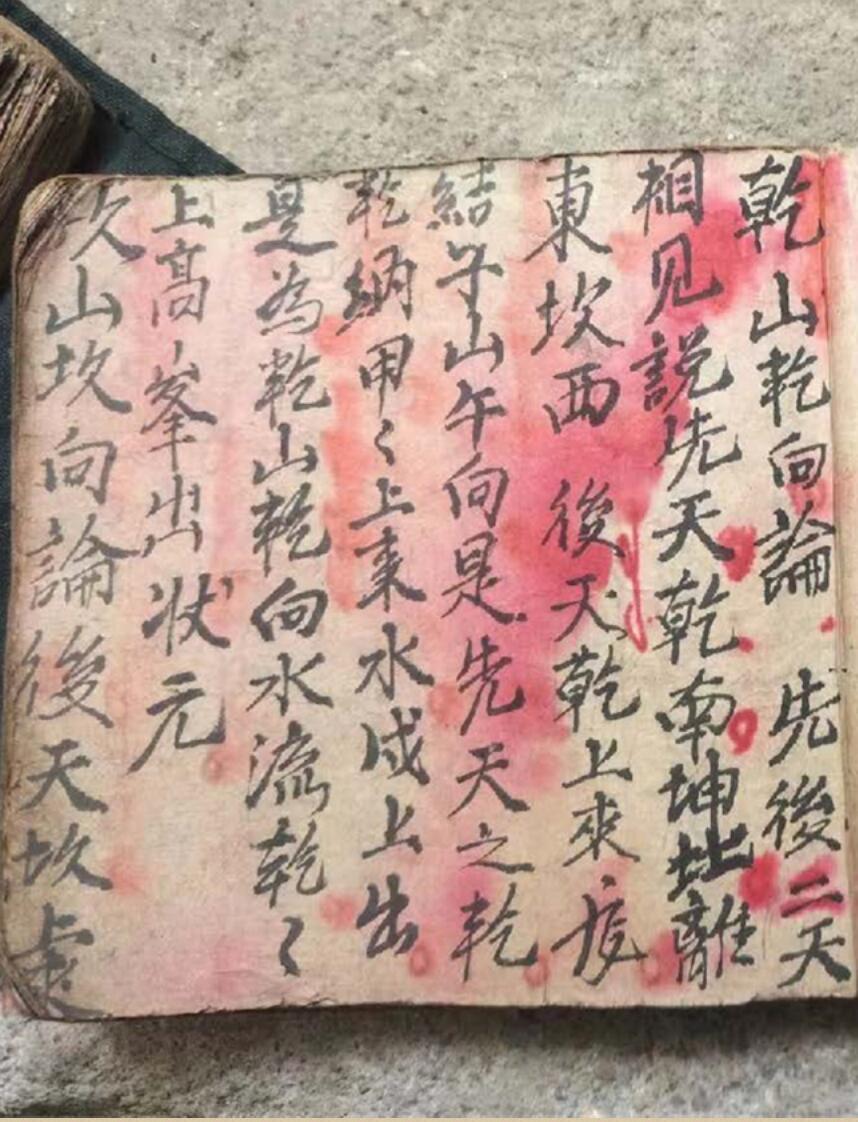 乾山乾向論 先後二天
相见説先天乾南坤北離
東坎西 後天乾上來度
結子山午向是先天之乾
乾納甲〻上来水戌上出
是為乾山乾向水流乾〻
上高峯出状元
坎山坎向論後天坎處